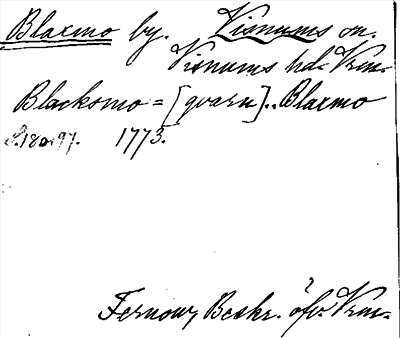 Blaxmo by. Visnums sn.
Visnums hd. Vrm.
Blacksmo = [qvarn].. Blaxmo
S. 180. 97. 1773.
Fernow, Beskr. öfv. Vrm.